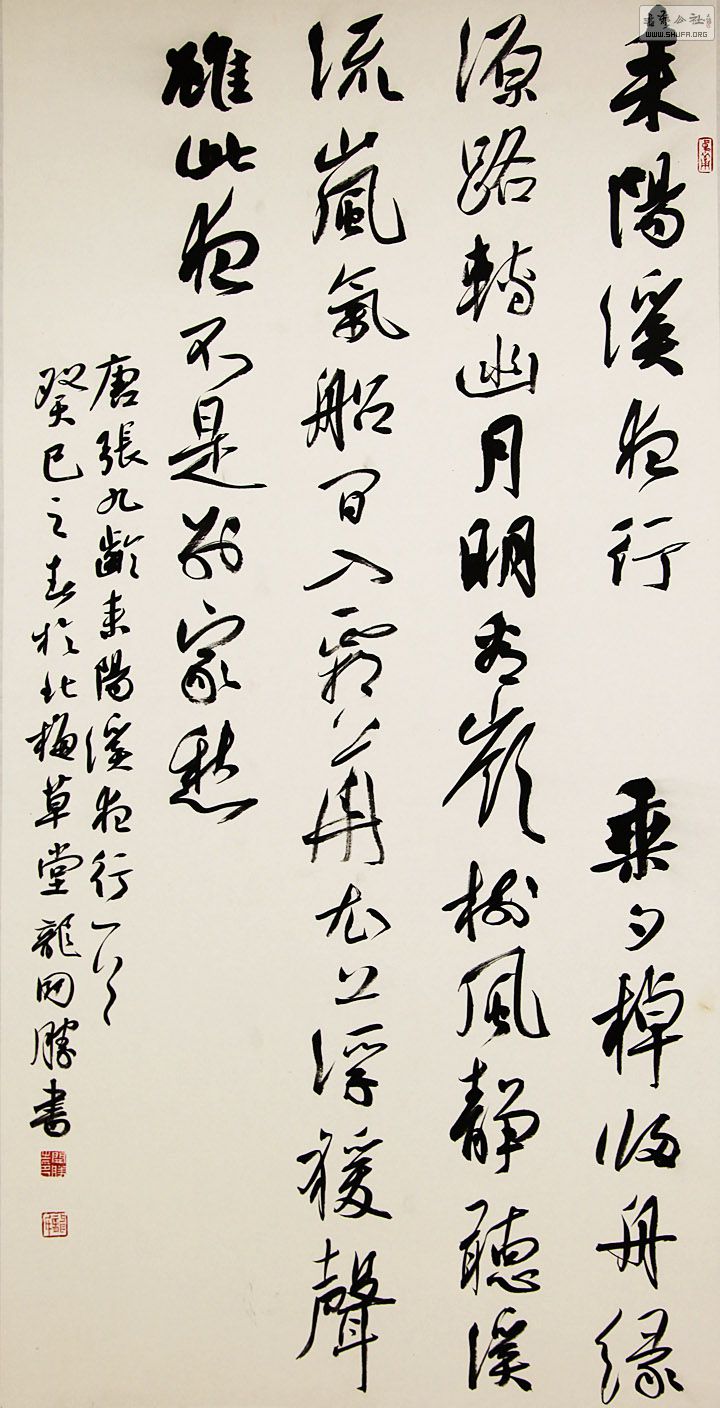 書藝公社
WWW.SHUFA.ORG
耒陽溪夜行 乘夕棹归舟緣
源路轉幽月明看嶺樹風靜聽溪
流嵐氣船間入霜華衣上浮猿聲
雖此夜不是別家愁
唐張九齡耒陽溪夜行一首
癸巳之春於北梅草堂龍開勝書